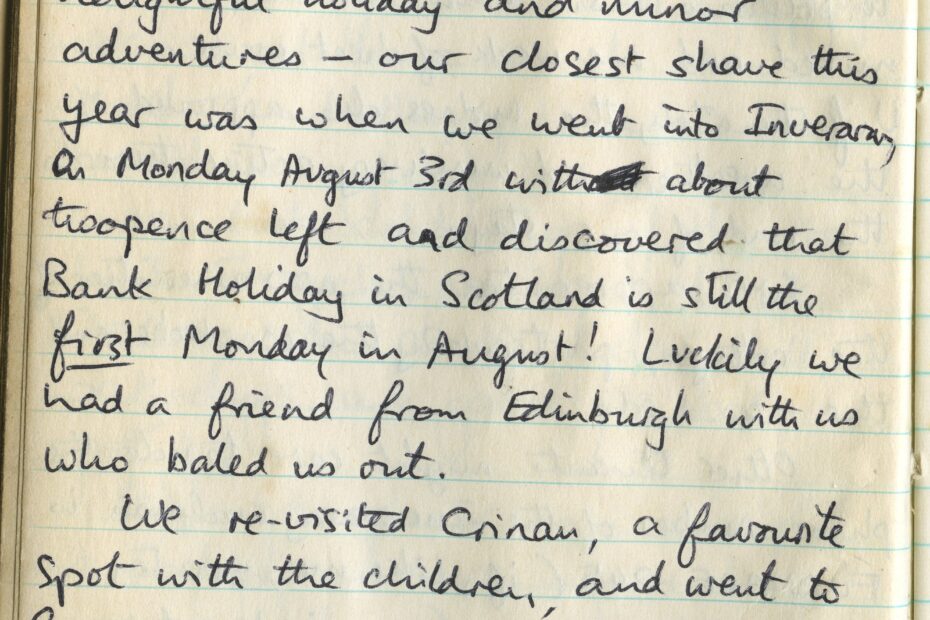 delightful holiday and minor
adventures – our closest shave this
year was when we went into Inveraray,
on Monday August 3rd with about
twopence left and discovered that
Bank Holiday in Scotland is still the
first Monday in August! Luckily we
had a friend from Edinburgh with us
who baled us out.
We re-visited Crinan, a favourite
spot with the children, and went to